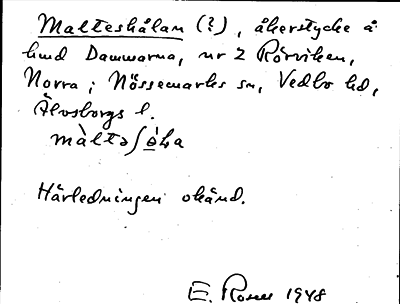 Malteskålan (?), åkerstycke å
hmd Dammarna, nr 2 Rörviken,
Norra; Nössemarks sn, Vedbo hd,
Älvsborgs l.
Härledningen okänd.
E. Rosell 1948